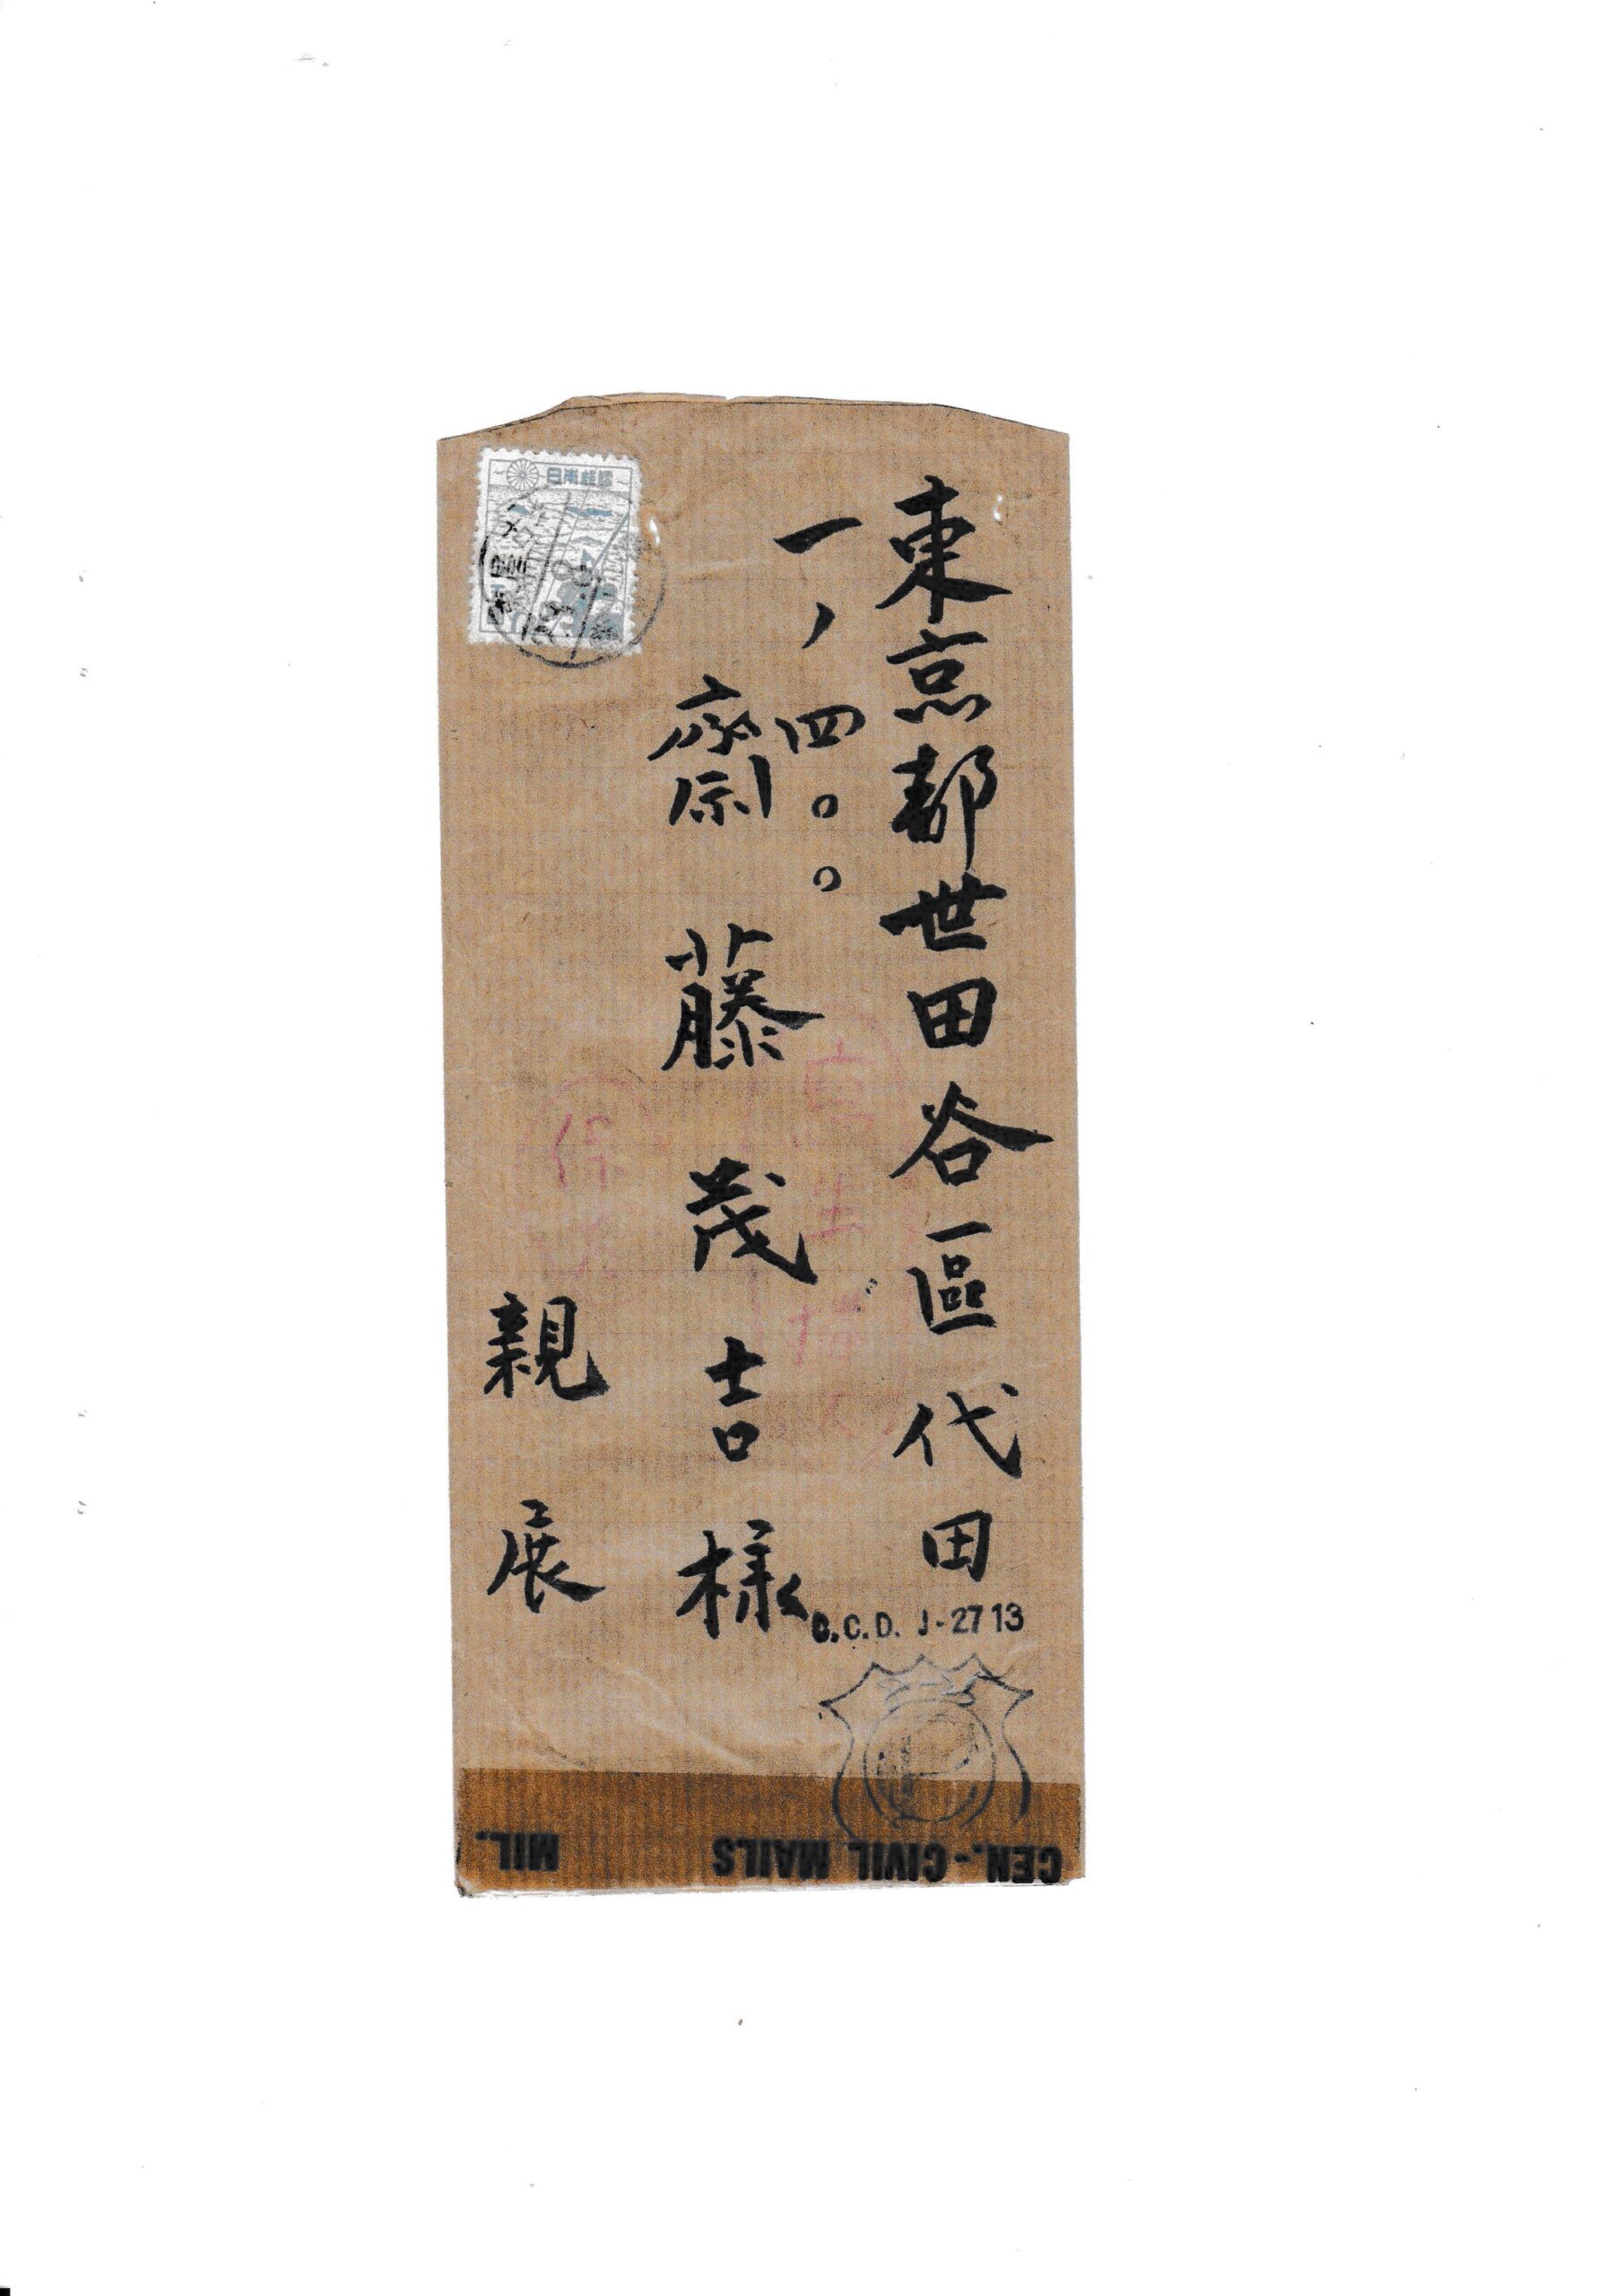 東京都世田谷區代田
一ノ四〇〇
齋藤茂吉様
親展
日本郵便
C.C.D. J-2713
CEN.-CIVIL MAILS
MIL.